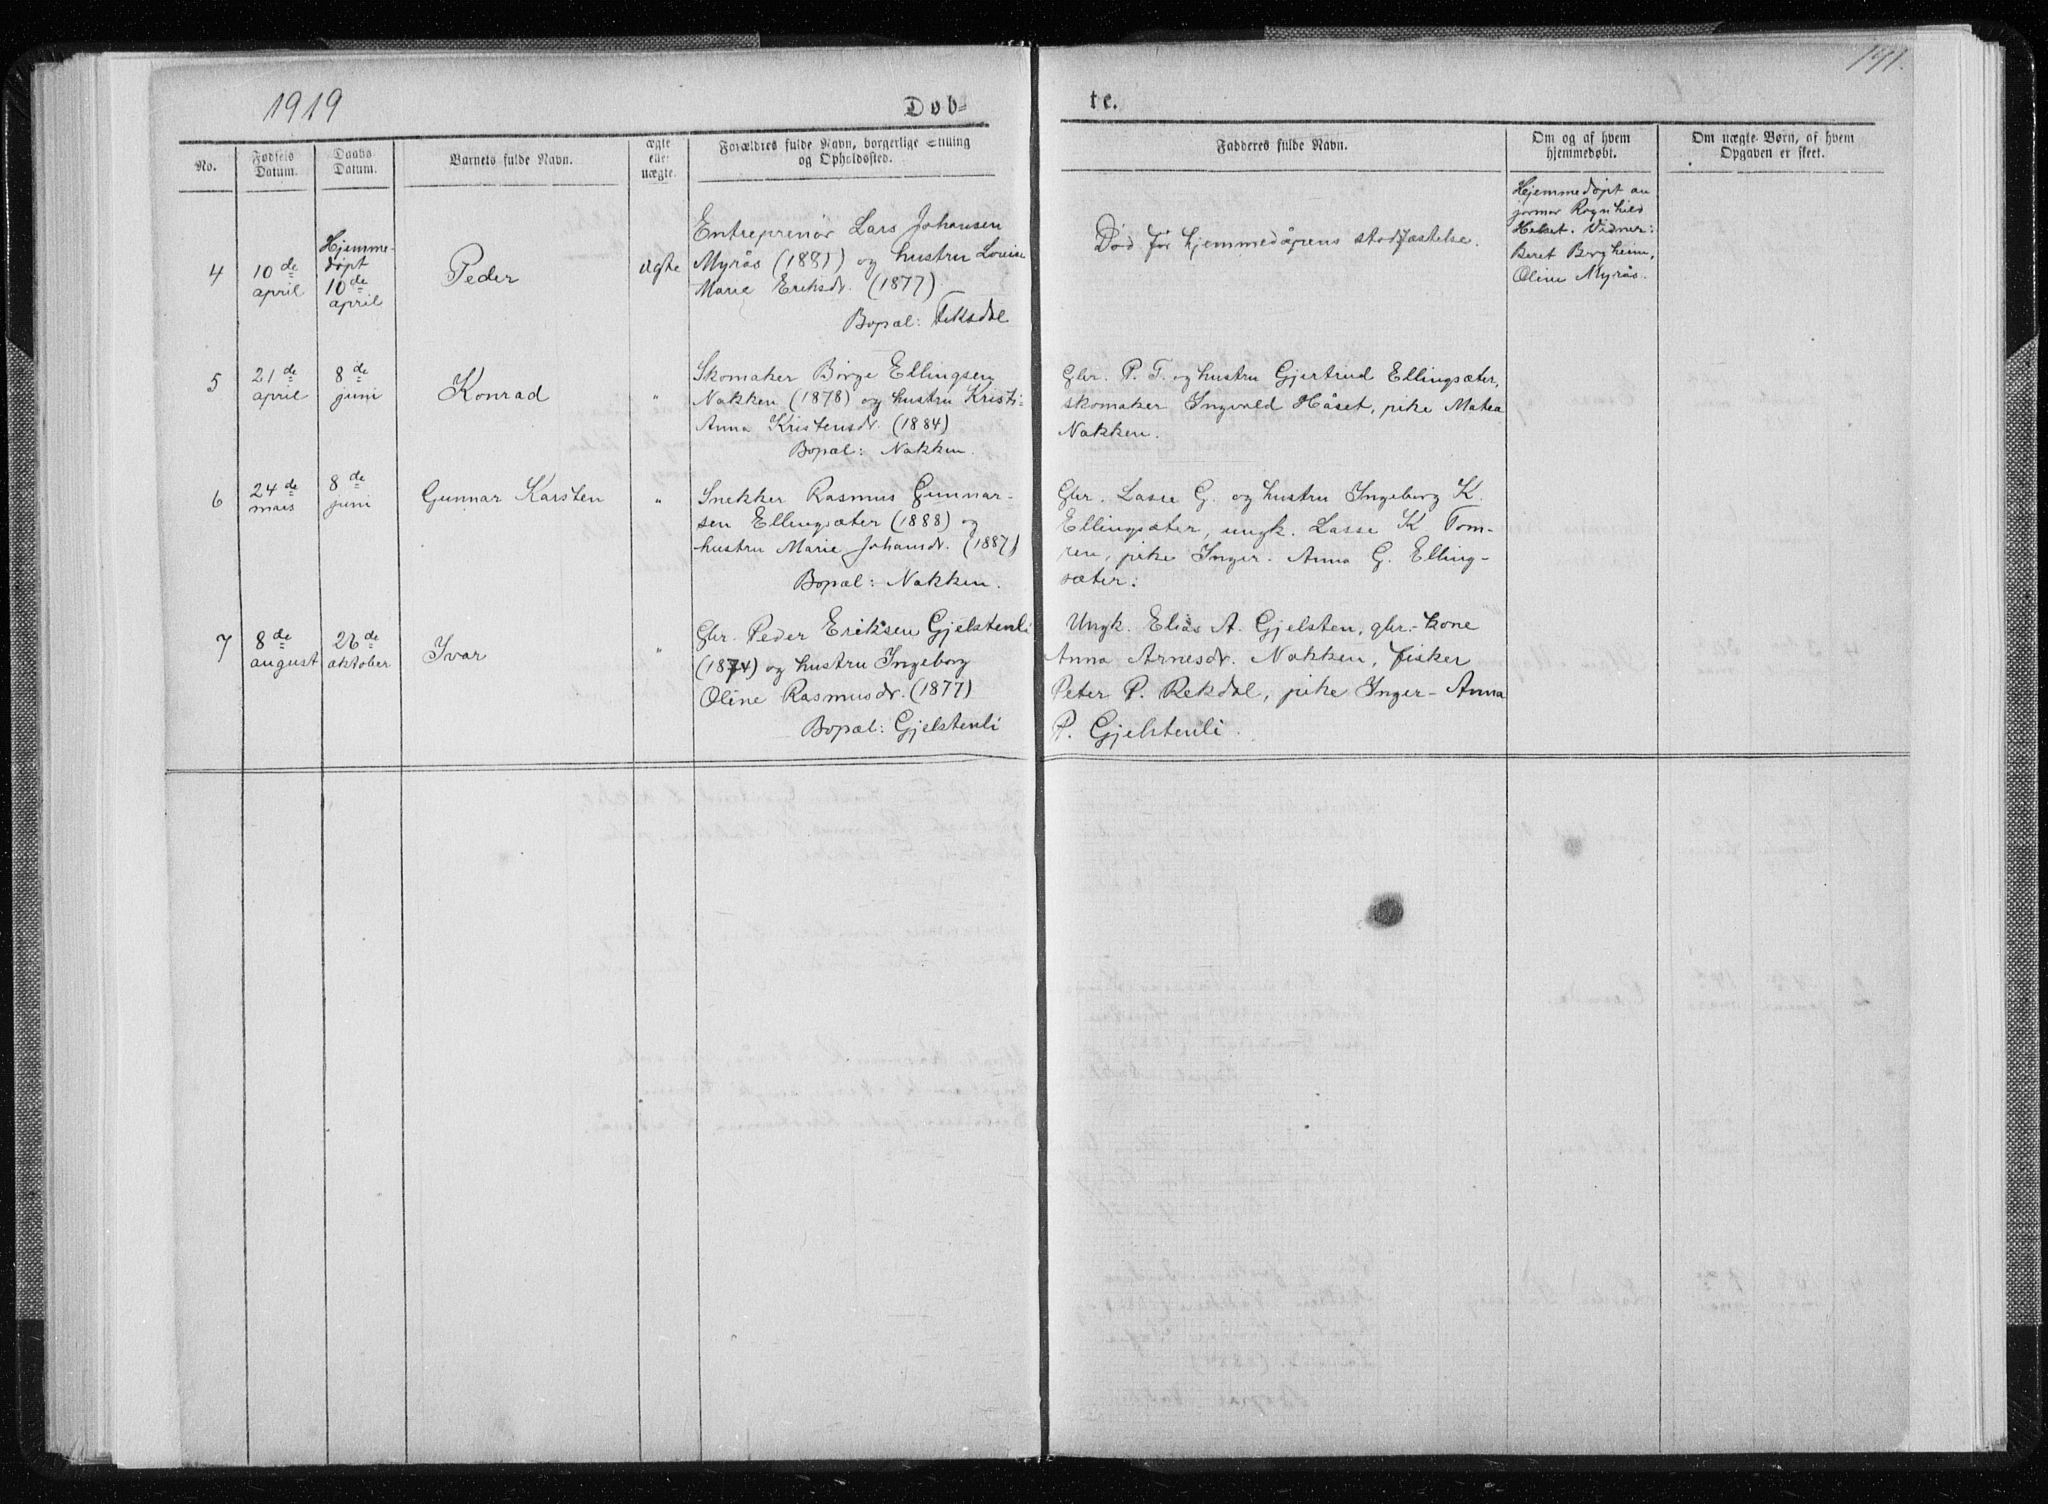 1919
Døb-
te.
171.
No.
Fødsels Datum.
Daabs Datum.
Barnets fulde Navn.
ægte eller uægte.
Forældres fulde Navn, borgerlige Stilling og Opholdssted.
Fadderes fulde Navn.
Om og af hvem hjemmedøbt.
Om uægte Børn, af hvem Opgaven er skeet.
4
10de april
Hjemme-
døpt
10de
april
Peder
egte
Entreprenør Lars Johansen
Myrås (1881) og hustru Lovise
Marie Eriksdr. (1877).
Bopæl: Fiksdal
Død før hjemmedåpens stadfæstelse.
Hjemmedøpt av
jormor Ragnhild
Helset. Vidner:
Beret Bergheim,
Oline Myrås.
5
21de april
8de juni
Konrad
"
Skomaker Børge Ellingsen
Nakken (1878) og hustru Kristi-
Anna Kristensdr. (1884)
Bopæl: Nakken.
Gbr. P. T. og hustru Gjertrud Ellingsæter,
skomaker Ingvald Håset, pike Matea
Nakken.
6
24de mars
8de juni
Gunnar Karsten
"
Snekker Rasmus Gunnar-
sen Ellingsæter (1888) og
hustru Marie Johansdr. (1887)
Bopæl: Nakken.
Gbr. Lasse G. og hustru Ingeborg K.
Ellingsæter, ungk. Lasse K Tom-
ren, pike Inger-Anna G. Elling-
sæter.
7
8de august
26de oktober
Ivar
"
Gbr. Peder Eriksen Gjelstenli
(1874) og hustru Ingeborg
Oline Rasmusdr. (1877)
Bopæl: Gjelstenli
Ungk. Elias A. Gjelsten, gbr.-kone
Anna Arnesdr. Nakken, fisker
Peter P. Rekdal, pike Inger-Anna
P. Gjelstenli.